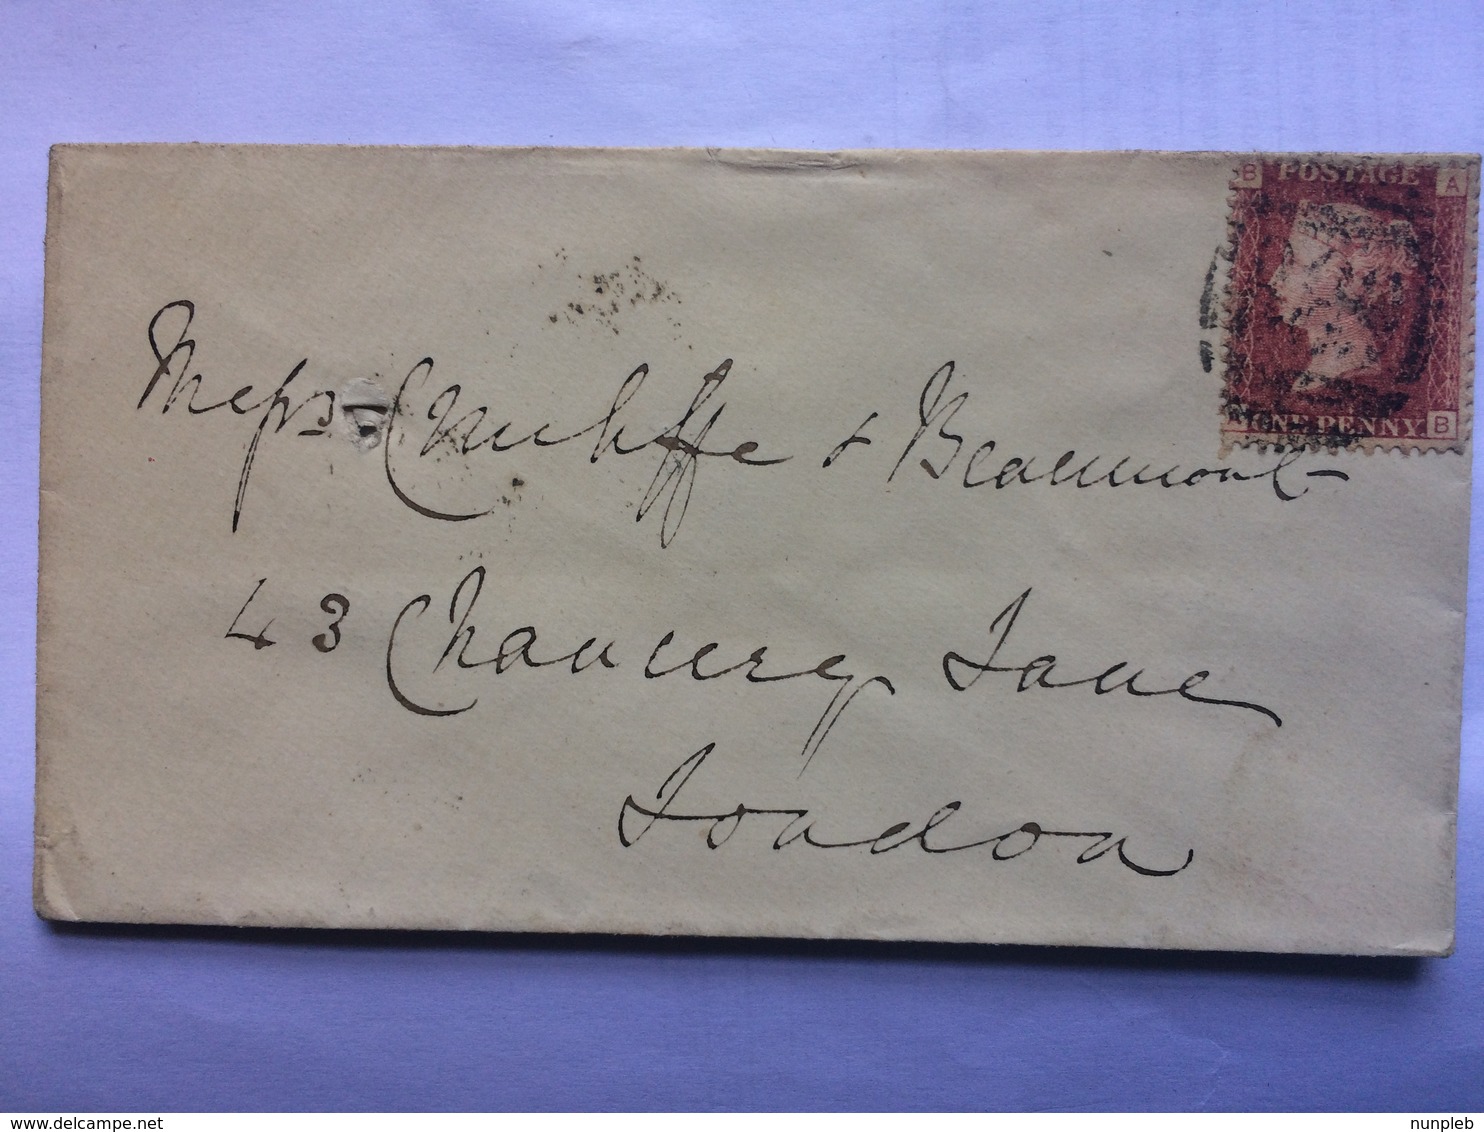 B POSTAGE A
ONE PENNY B
Messrs Cunliffe & Beaumont
43 Chancery Lane
London
delcampe.net
nunpleb